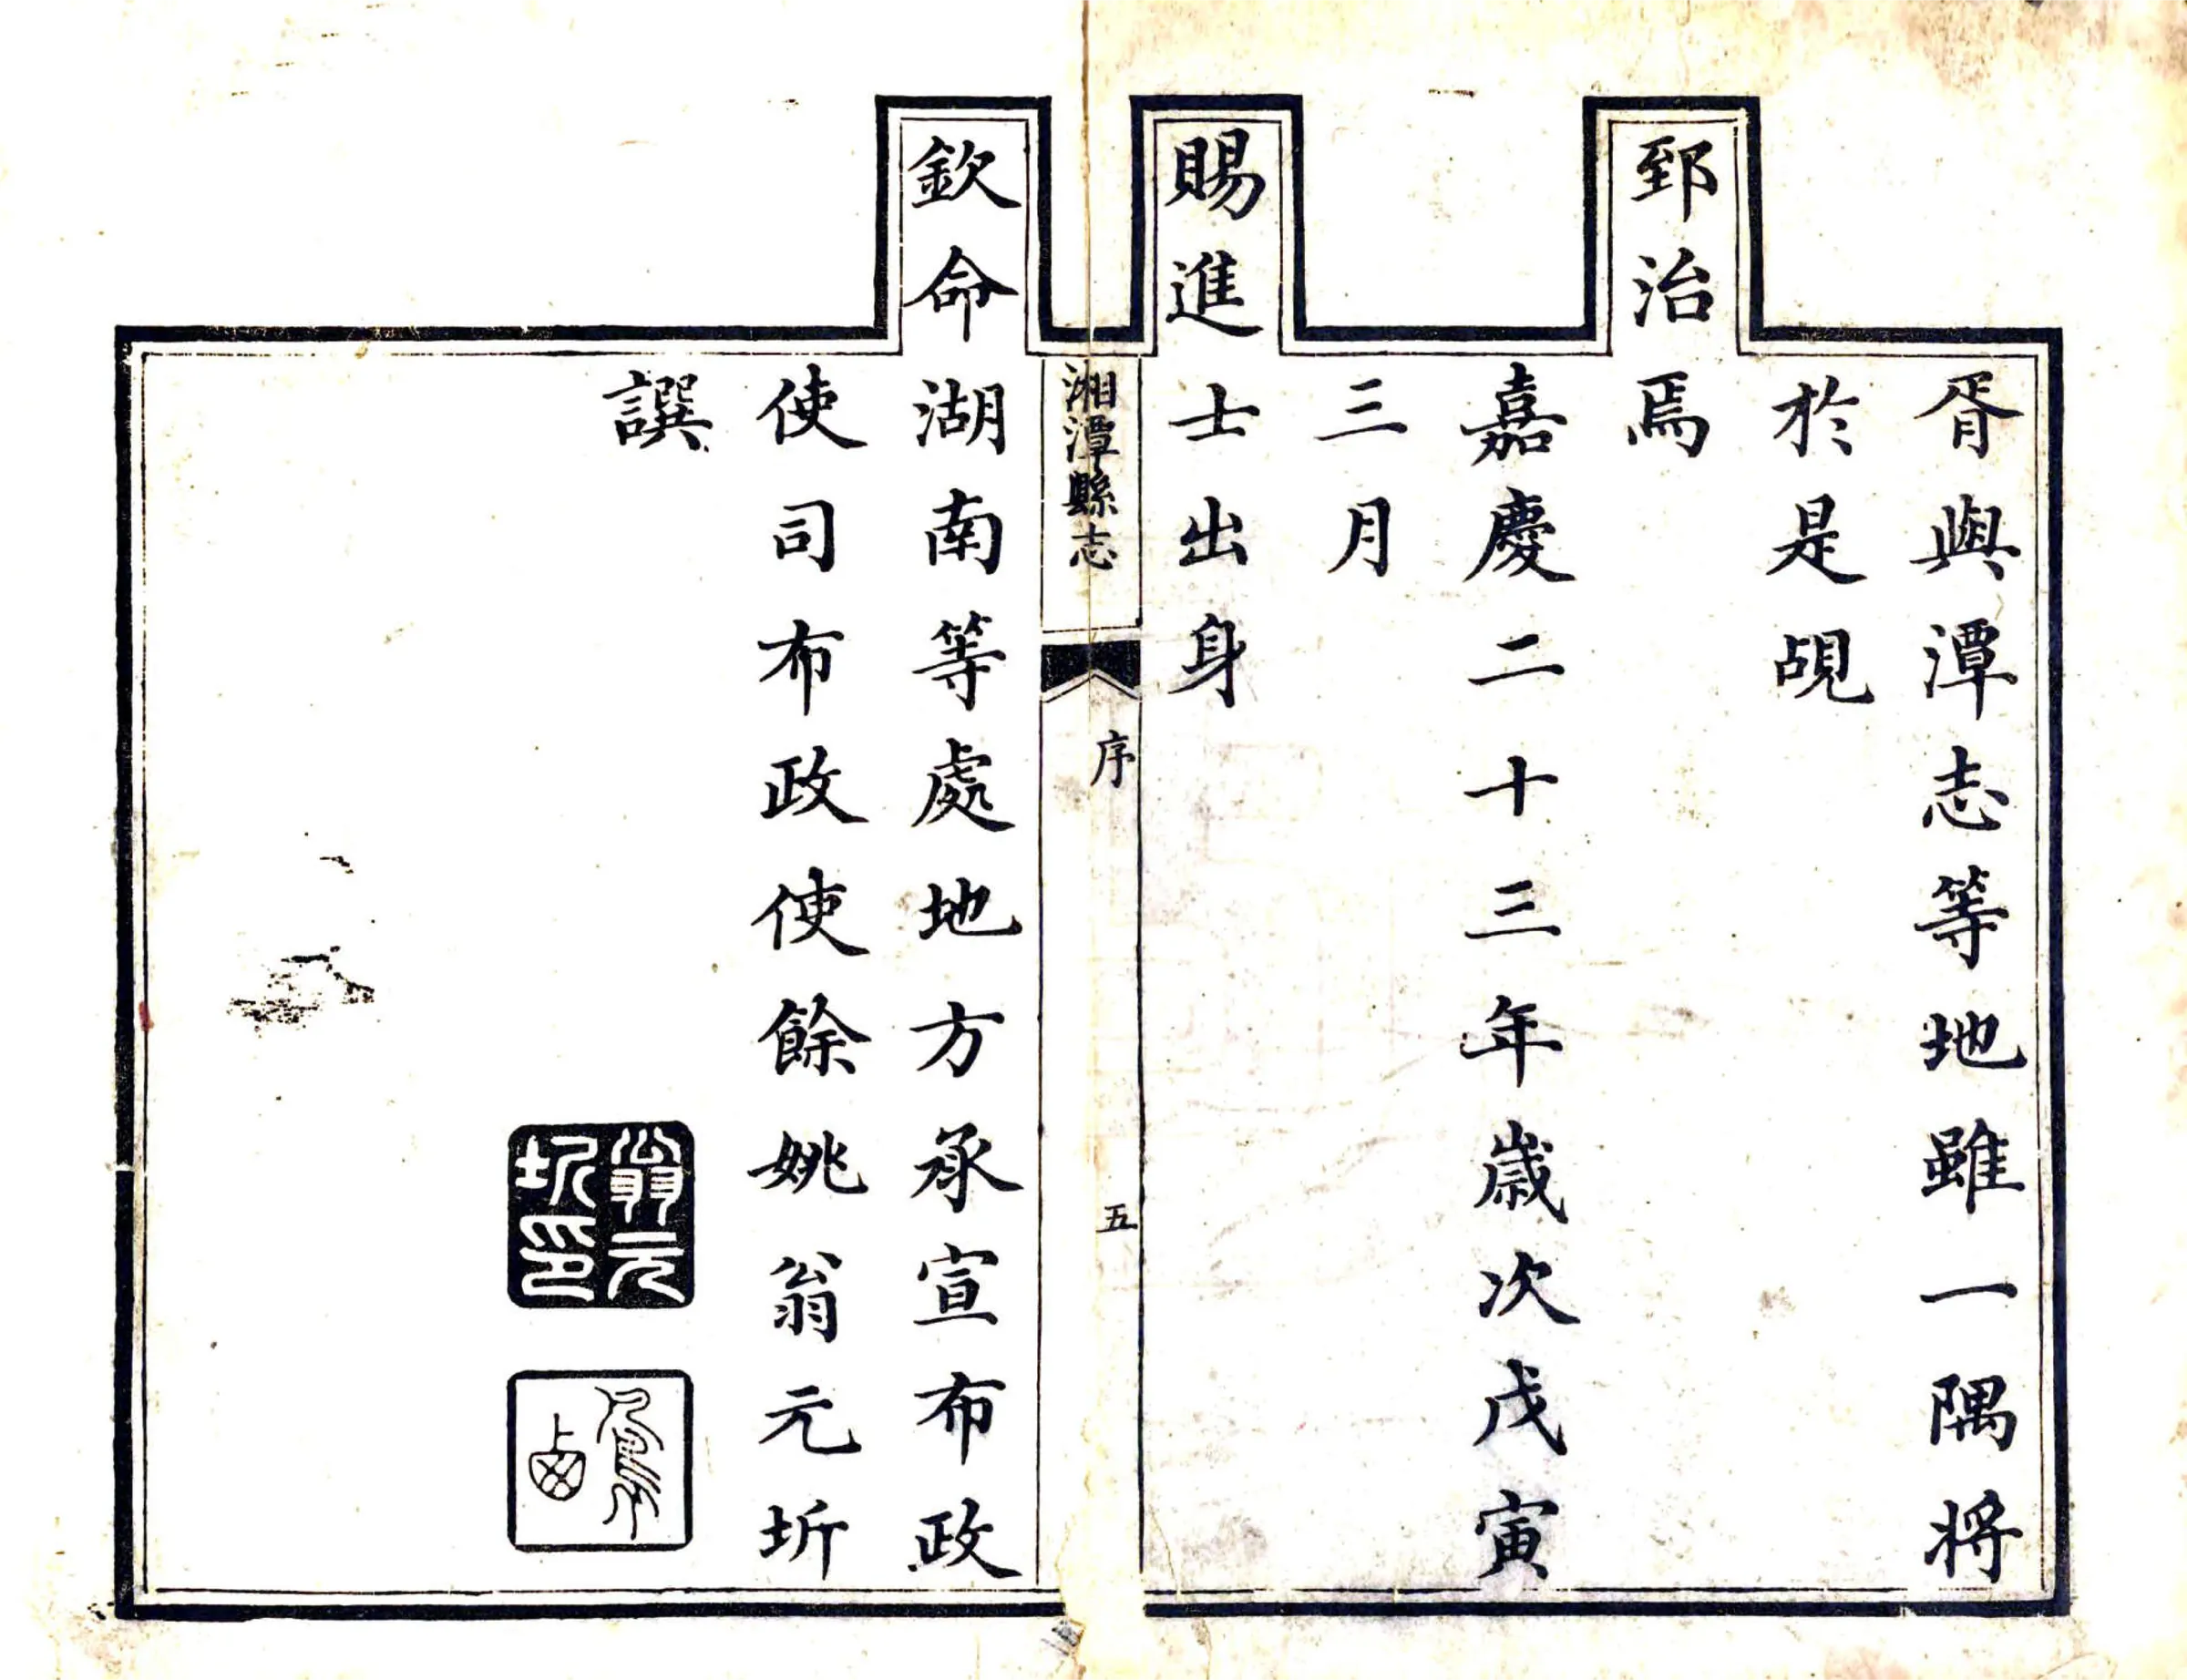 胥與潭志等地雖一隅將
於是覘
郅治焉
嘉慶二十三年歲次戊寅
三月
賜進士出身
湘潭縣志
序
五
欽命湖南等處地方承宣布政
使司布政使餘姚翁元圻
譔
翁元圻印
鳳西